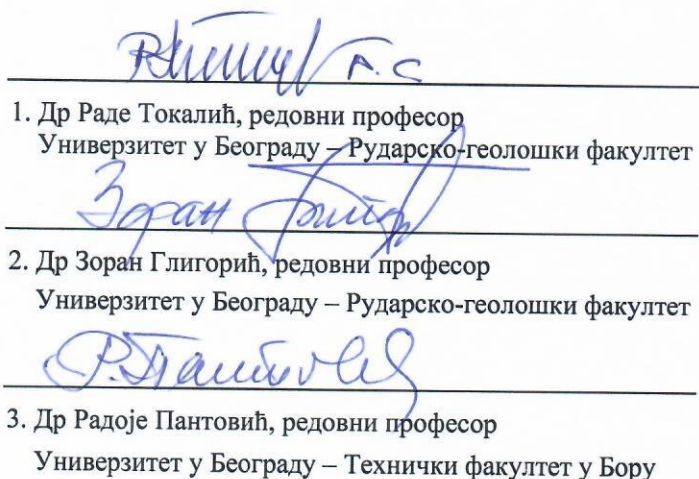 1. Др Раде Токалић, редовни професор
Универзитет у Београду – Рударско-геолошки факултет
Зоран
2. Др Зоран Глигорић, редовни професор
Универзитет у Београду – Рударско-геолошки факултет
3. Др Радоје Пантовић, редовни професор
Универзитет у Београду – Технички факултет у Бору